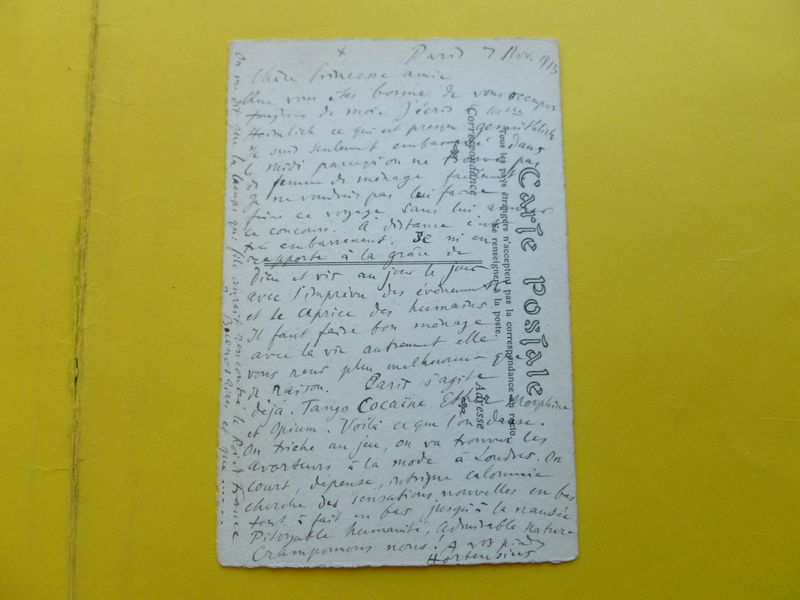 Paris 7 Nov. 1913
x
Chère Princesse amie
vous êtes bonne de vous occuper
toujours de moi. J'écris à
Heimlich ce qui est presque gemüthlich
Je suis seulement embarrassé dans
le midi parcequ'on ne trouve pas
de femme de ménage facilement
Je ne voudrais pas lui faire
faire ce voyage sans lui
ce concours. A distance c'est
embarrassant. Je m'en
rapporte à la grâce de
Dieu et vis au jour le jour
avec l'imprévu des événements
et le caprice des humains
Il faut faire bon ménage
avec la vie autrement elle
vous rend plus malheureux que
de raison. Paris s'agite
déjà. Tango Cocaïne Ether Morphine
et Opium. Voilà ce que l'on danse.
On triche au jeu, on va trouver les
avorteurs à la mode à Londres. On
court, dépense, intrigue calomnie
cherche des sensations nouvelles en bas
tout à fait en bas jusqu'à la nausée
Pitoyable humanité, admirable nature
Cramponnons nous! A vos pieds
Hortensius
On me dit que la
qu'il aurait rencontré le Roi de France
à Buenos aires et que ......
Carte Postale
Tous les pays étrangers n'acceptent pas la correspondance au recto
Se renseigner à la poste.
Correspondance
Adresse